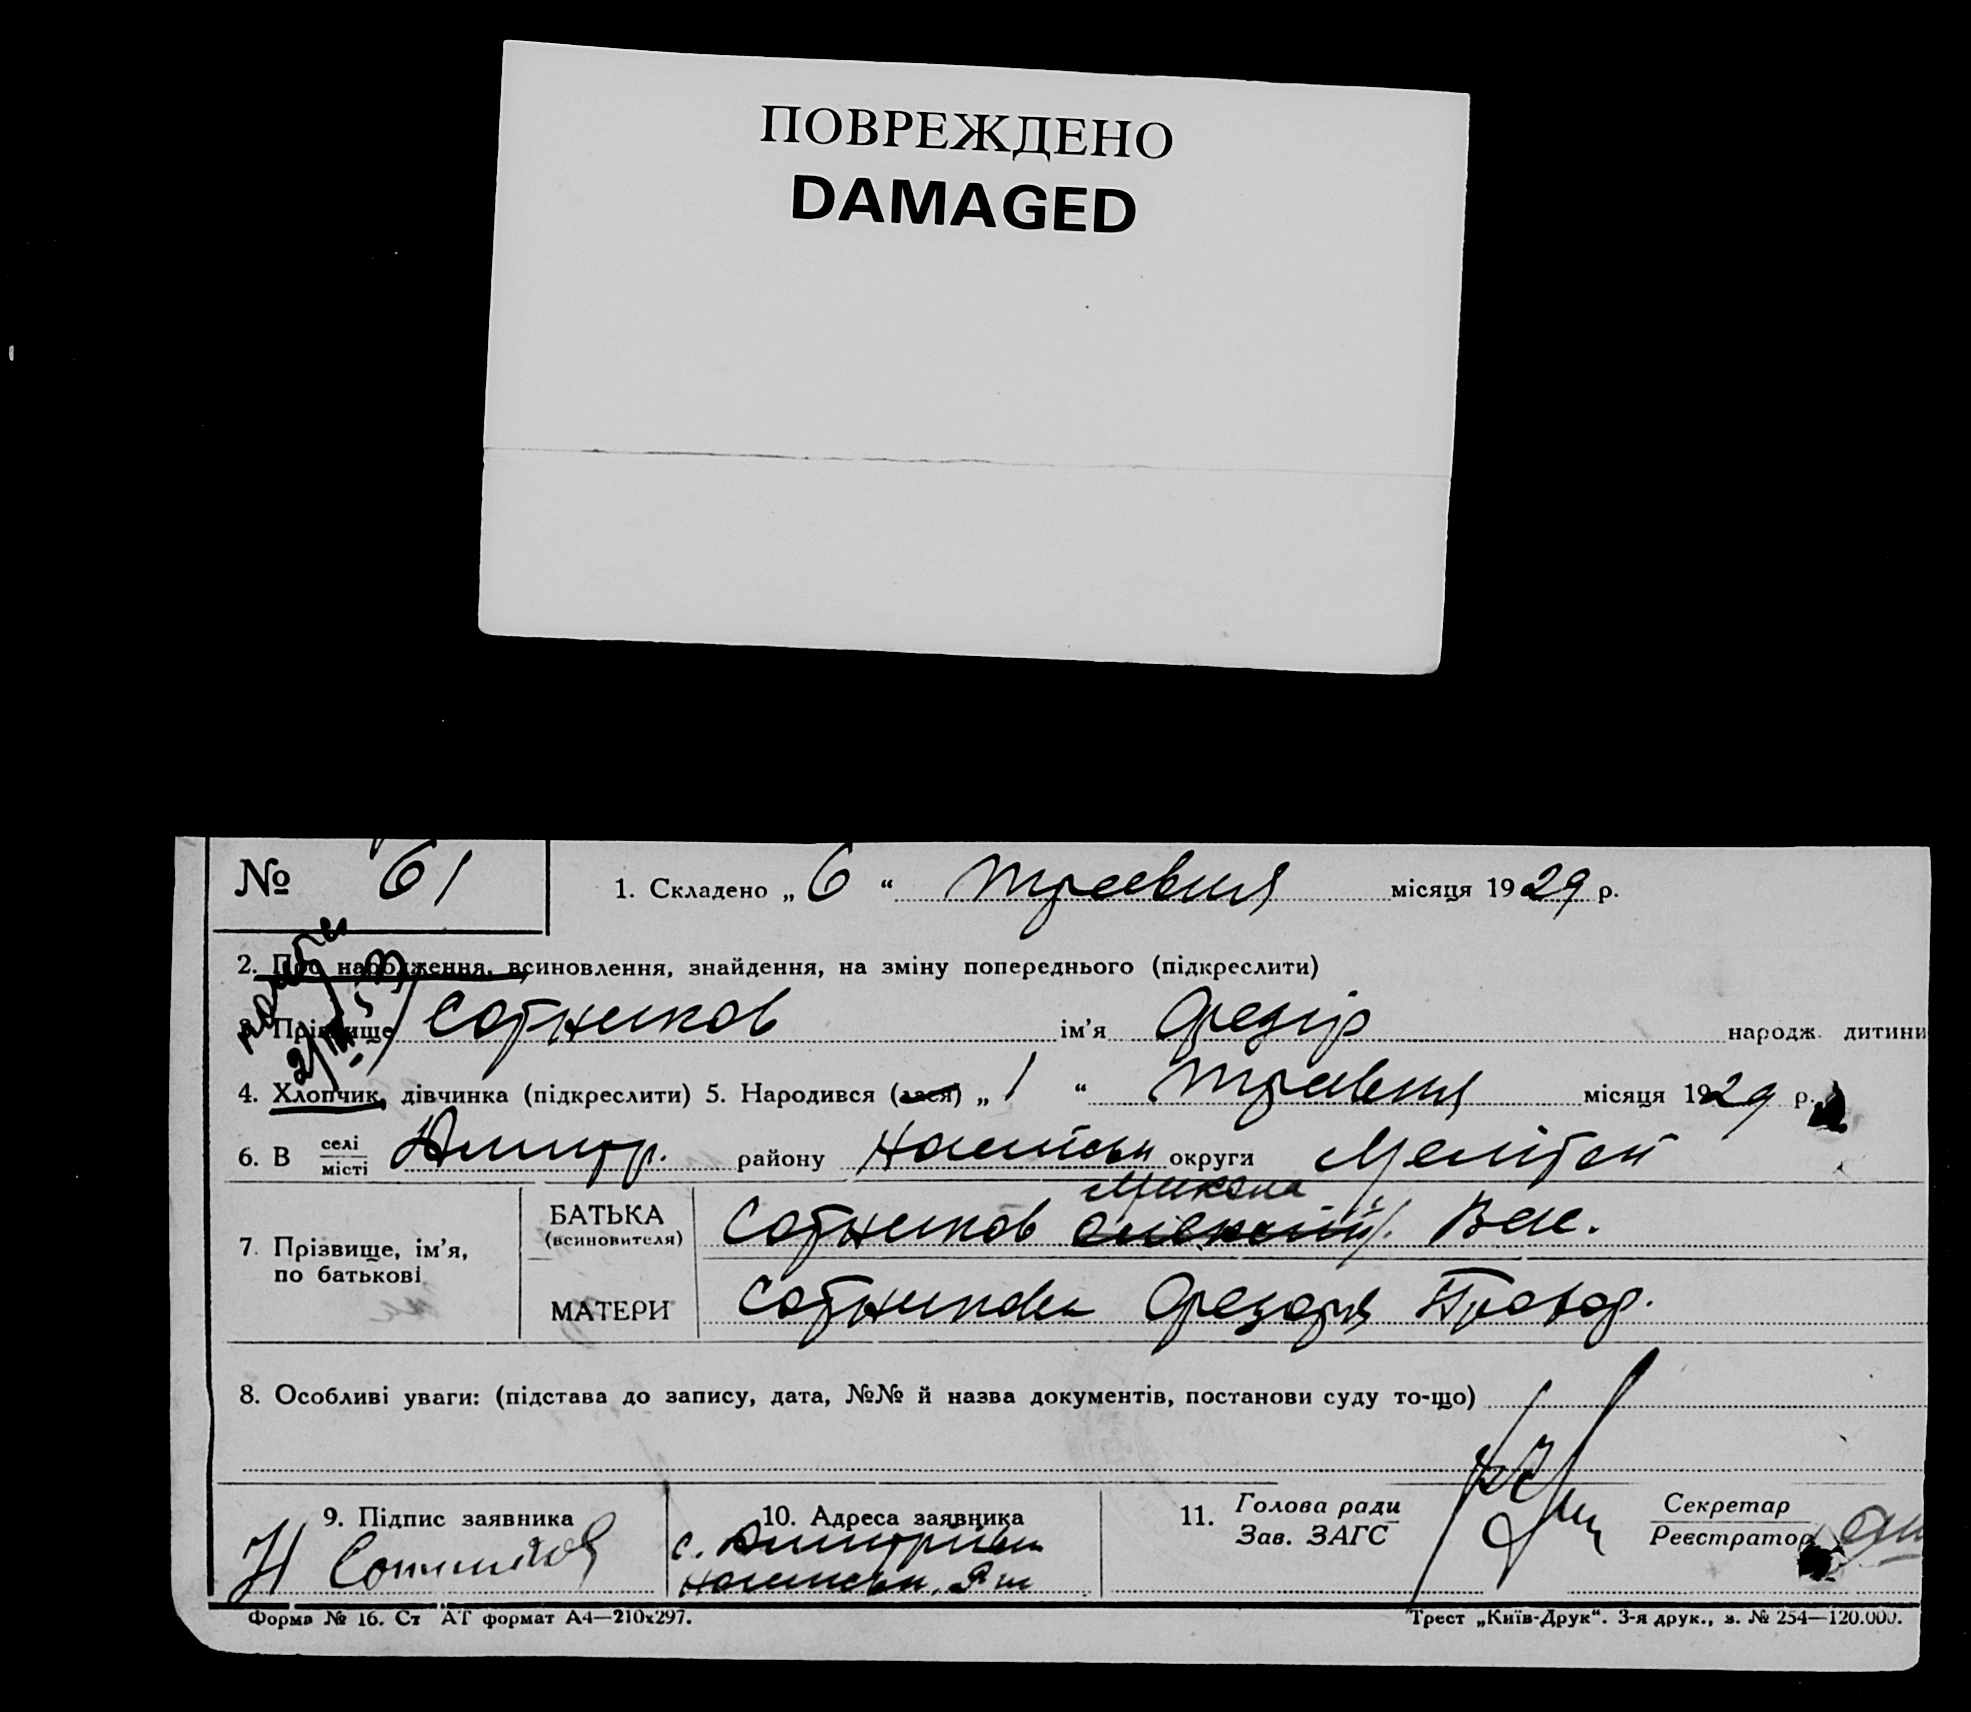 ПОВРЕЖДЕНО
DAMAGED
№ 61
1. Складено „ 6 “ травня місяця 1929 р.
2. Про народження, всиновлення, знайдення, на зміну попереднього (підкреслити)
3. Прізвище Сотников ім'я Федір народж. дитини
4. Хлопчик, дівчинка (підкреслити) 5. Народився (лася) „ 1 “ травня місяця 1929 р.
6. В селі місті Дмитр. району округи Меліт
Микола
7. Прізвище, ім'я, по батькові БАТЬКА (всиновителя) Сотников Вас.
МАТЕРИ Сотникова Федора
8. Особливі уваги: (підстава до запису, дата, №№ й назва документів, постанови суду то-що)
9. Підпис заявника 10. Адреса заявника 11. Голова ради Зав. ЗАГС Секретар Реєстратор
Н Сотников с. Дмитрівка
Форма № 16. Ст АТ формат А4—210х297. Трест „Київ-Друк“. 3-я друк., з. № 254—120.000.